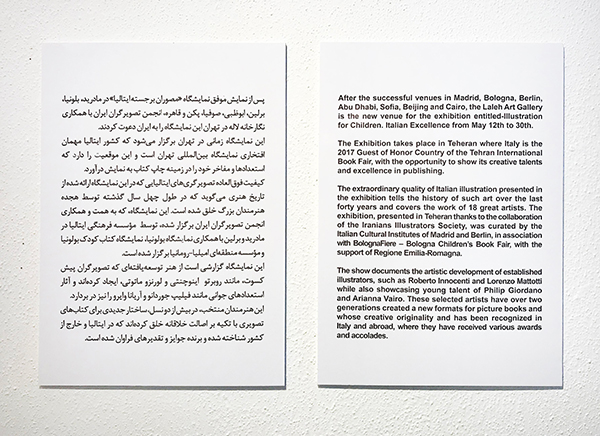 پس از نمایش موفق نمایشگاه «مصوران برجسته ایتالیا» در مادرید، بلونیا،
برلین، ابوظبی، صوفیا، پکن و قاهره، انجمن تصویرگران ایران با همکاری
نگارخانه لاله در تهران این نمایشگاه را به ایران دعوت کردند.
این نمایشگاه زمانی در تهران برگزار می‌شود که کشور ایتالیا مهمان
افتخاری نمایشگاه بین‌المللی تهران است و این موقعیت را دارد که
استعدادها و مفاخر خود را در زمینه چاپ کتاب به نمایش درآورد.
کیفیت فوق‌العاده تصویرگری‌های ایتالیایی که در این نمایشگاه ارائه شده از
تاریخ هنری می‌گوید که در طول چهل سال گذشته توسط هجده
هنرمندان بزرگ خلق شده است. این نمایشگاه، که به همت و همکاری
انجمن تصویرگران ایران برگزار شده، توسط مؤسسه فرهنگی ایتالیا در
مادرید و برلین با همکاری نمایشگاه بولونیا، نمایشگاه کتاب کودک بولونیا
و مؤسسه منطقه‌ای امیلیا-رومانیا برگزار شده است.
این نمایشگاه گزارشی است از هنر توسعه‌یافته‌ای که تصویرگران پیش
کسوت، مانند روبرتو اینوچنتی و لورنزو ماتوتی، ایجاد کرده‌اند و آثار
استعدادهای جوانی مانند فیلیپ جوردانو و آریانا وایرو را نیز در بردارد.
این هنرمندان منتخب، در بیش از دو نسل، ساختار جدیدی برای کتاب‌های
تصویری با تکیه بر اصالت خلاقانه خلق کرده‌اند که در ایتالیا و خارج از
کشور شناخته شده و برنده جوایز و تقدیرهای فراوان شده است.
After the successful venues in Madrid, Bologna, Berlin,
Abu Dhabi, Sofia, Beijing and Cairo, the Laleh Art Gallery
is the new venue for the exhibition entitled-Illustration
for Children. Italian Excellence from May 12th to 30th.
The Exhibition takes place in Teheran where Italy is the
2017 Guest of Honor Country of the Tehran International
Book Fair, with the opportunity to show its creative talents
and excellence in publishing.
The extraordinary quality of Italian illustration presented in
the exhibition tells the history of such art over the last
forty years and covers the work of 18 great artists. The
exhibition, presented in Teheran thanks to the collaboration
of the Iranians Illustrators Society, was curated by the
Italian Cultural Institutes of Madrid and Berlin, in association
with BolognaFiere – Bologna Children's Book Fair, with the
support of Regione Emilia-Romagna.
The show documents the artistic development of established
illustrators, such as Roberto Innocenti and Lorenzo Mattotti
while also showcasing young talent of Philip Giordano
and Arianna Vairo. These selected artists have over two
generations created a new formats for picture books and
whose creative originality and has been recognized in
Italy and abroad, where they have received various awards
and accolades.